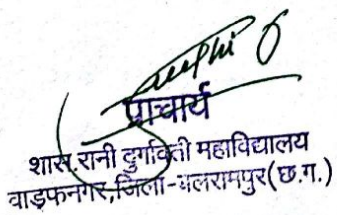 प्राचार्य
शास. रानी दुर्गावती महाविद्यालय
वाड्रफनगर, जिला-बलरामपुर (छ.ग.)